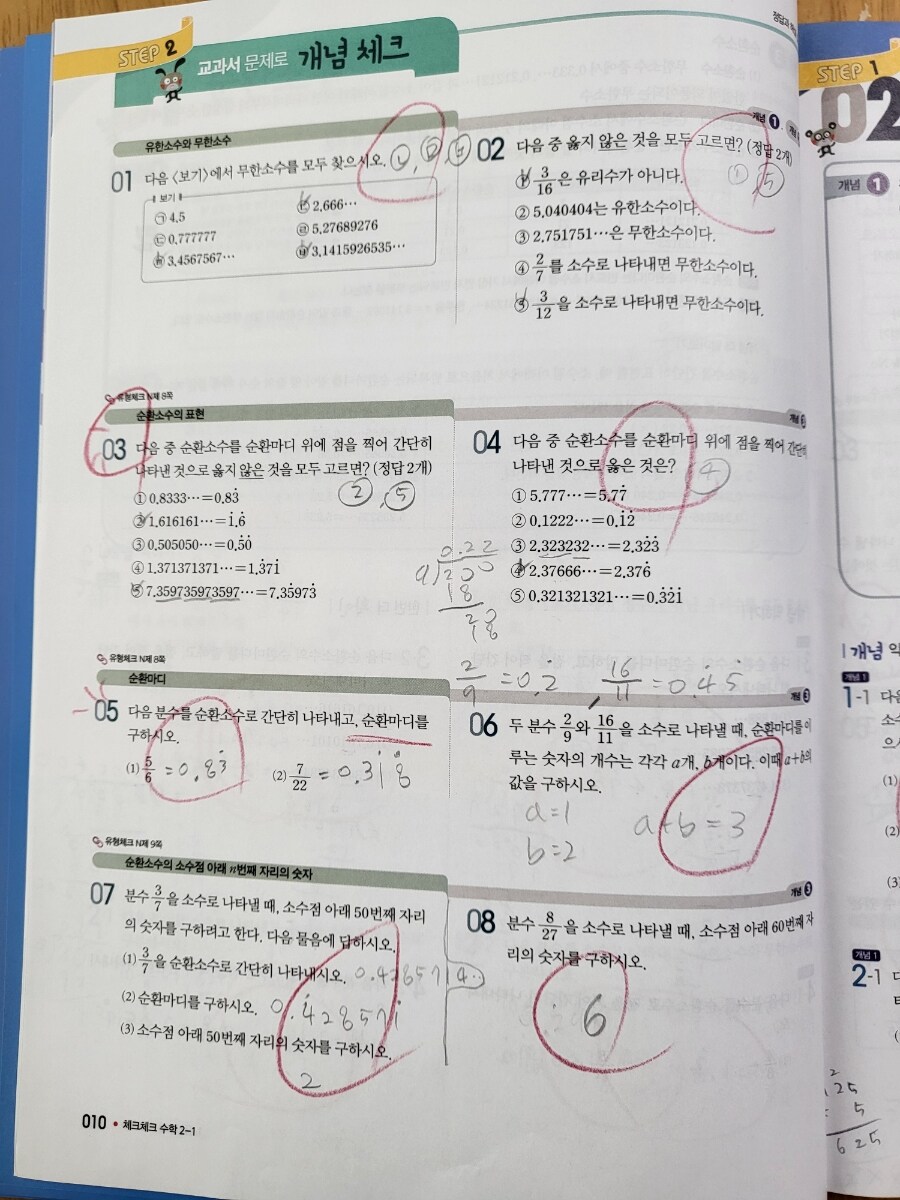 STEP 2
교과서 문제로 개념 체크
STEP 1
02
유한소수와 무한소수
01 다음 <보기>에서 무한소수를 모두 찾으시오.
보기
㉠ 4.5
㉡ 2.666…
㉢ 0.777777
㉣ 5.27689276
㉤ 3.4567567…
㉥ 3.1415926535…
개념 1
02 다음 중 옳지 않은 것을 모두 고르면? (정답 2개)
① ⑤
① 3/16은 유리수가 아니다.
② 5.040404는 유한소수이다.
③ 2.751751…은 무한소수이다.
④ 2/7를 소수로 나타내면 무한소수이다.
⑤ 3/12을 소수로 나타내면 무한소수이다.
유형체크 N제 8쪽
순환소수의 표현
03 다음 중 순환소수를 순환마디 위에 점을 찍어 간단히
나타낸 것으로 옳지 않은 것을 모두 고르면? (정답 2개)
②, ⑤
① 0.8333…=0.83̇
② 1.616161…=1̇.6̇
③ 0.505050…=0.5̇0̇
④ 1.371371371…=1.3̇71̇
⑤ 7.359735973597…=7.3̇5973̇
04 다음 중 순환소수를 순환마디 위에 점을 찍어 간단히
나타낸 것으로 옳은 것은?
④
① 5.777…=5.7̇7̇
② 0.1222…=0.1̇2̇
③ 2.323232…=2.32̇3̇
④ 2.37666…=2.376̇
⑤ 0.321321321…=0.3̇2̇1̇
0.22
9)200
18
유형체크 N제 8쪽
순환마디
05 다음 분수를 순환소수로 간단히 나타내고, 순환마디를
구하시오.
(1) 5/6 =0.83̇
(2) 7/22 =0.31̇8̇
2/9 =0.2̇
16/11 =0.4̇5̇
06 두 분수 2/9와 16/11을 소수로 나타낼 때, 순환마디를 이
루는 숫자의 개수는 각각 a개, b개이다. 이때 a+b의
값을 구하시오.
a=1
b=2
a+b=3
유형체크 N제 9쪽
순환소수의 소수점 아래 n번째 자리의 숫자
07 분수 3/7을 소수로 나타낼 때, 소수점 아래 50번째 자리
의 숫자를 구하려고 한다. 다음 물음에 답하시오.
(1) 3/7을 순환소수로 간단히 나타내시오. 0.4285714
(2) 순환마디를 구하시오. 0.4̇28571̇
(3) 소수점 아래 50번째 자리의 숫자를 구하시오.
2
개념 3
08 분수 8/27을 소수로 나타낼 때, 소수점 아래 60번째 자
리의 숫자를 구하시오.
6
010 • 체크체크 수학 2-1
개념 1
개념 1
1-1
(1)
(2)
(3)
개념 1
2-1
25
5
625